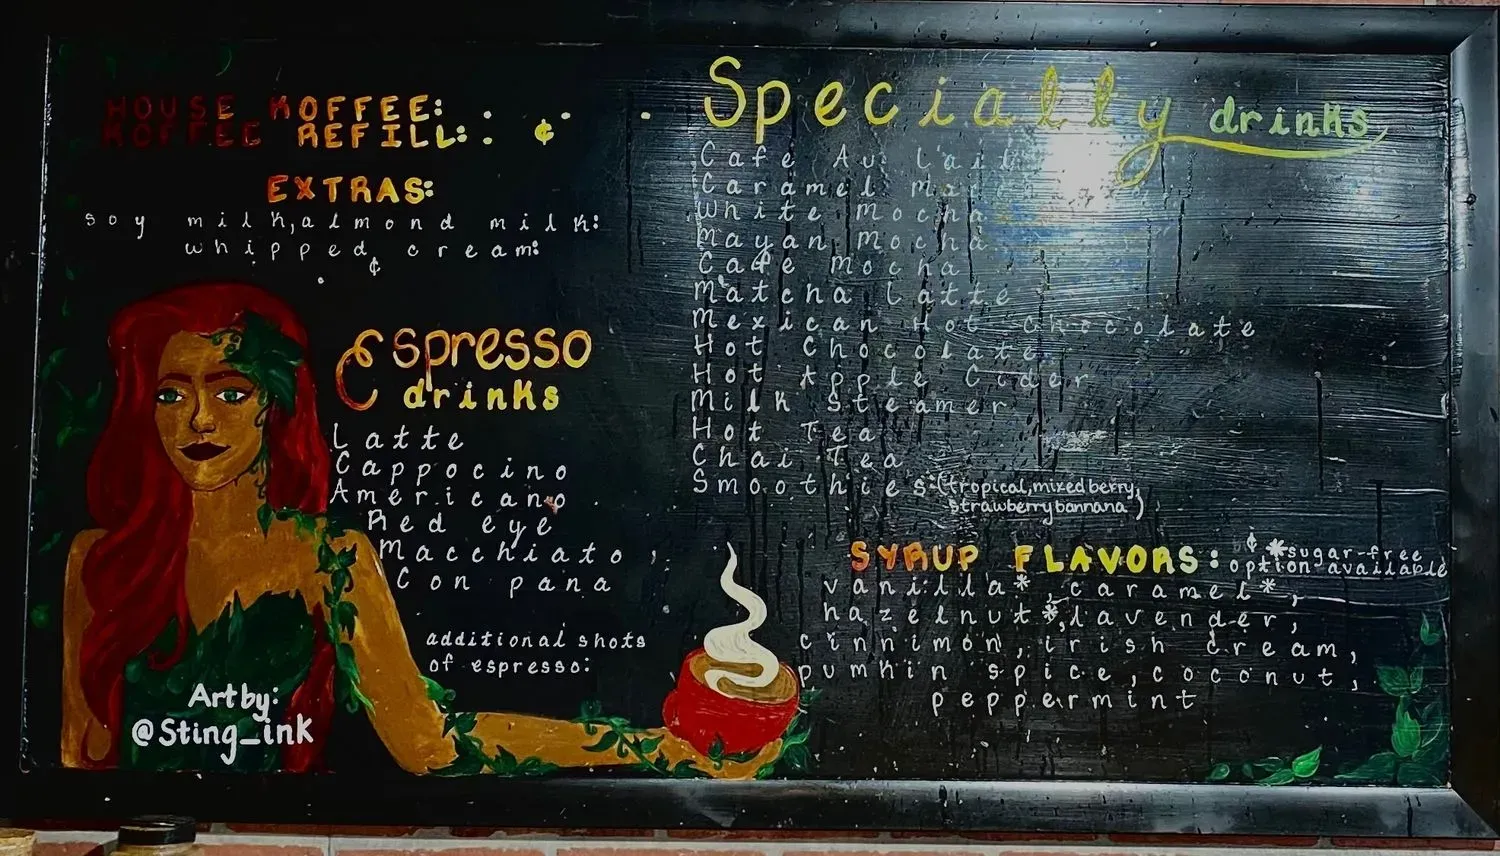 HOUSE KOFFEE:
KOFFEE REFILL: ¢
EXTRAS:
soy milk, almond milk:
whipped cream:
¢
Espresso
drinks
Latte
Cappocino
Americano
Red eye
Macchiato
Con pana
additional shots
of espresso:
Art by:
@Sting_ink
Specially drinks
Cafe Au Lait
Caramel
White Mocha
Mayan Mocha
Cafe Mocha
Matcha Latte
Mexican Hot Chocolate
Hot Chocolate
Hot Apple Cider
Milk Steamer
Hot Tea
Chai Tea
Smoothies:(tropical, mixed berry,
strawberry bannana)
SYRUP FLAVORS: ¢ *sugar-free
option available
vanilla*, caramel*,
hazelnut*, lavender,
cinnimon, irish cream,
pumkin spice, coconut,
peppermint